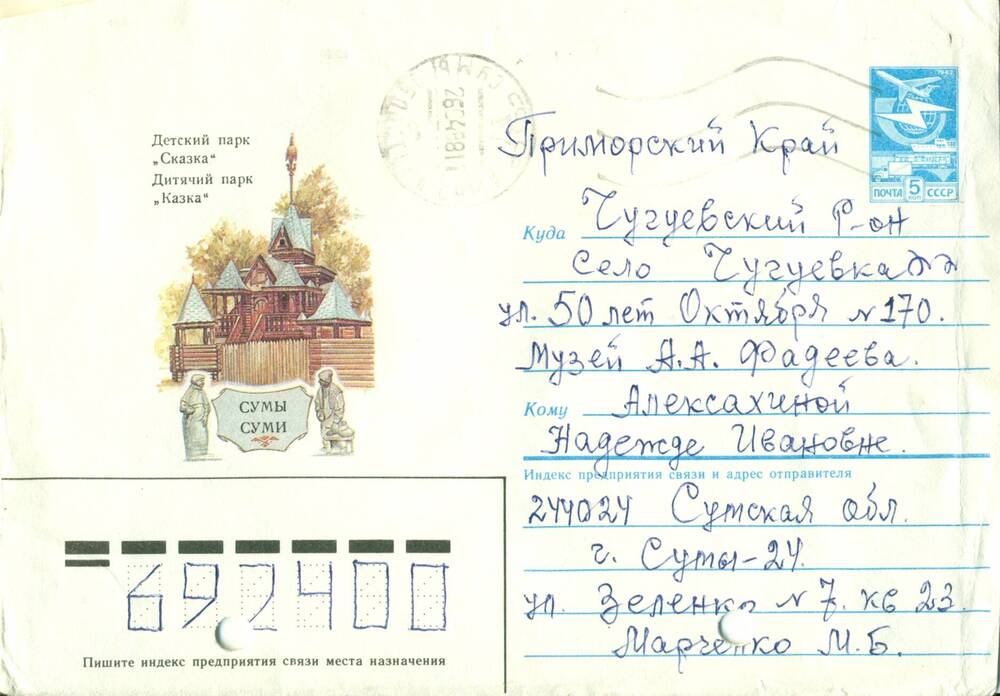 Детский парк
„Сказка“
Дитячий парк
„Казка“
СУМЫ
СУМИ
1982
ПОЧТА 5 КОП СССР
Приморский Край
Куда Чугуевский Р-он
село Чугуевка
ул. 50 лет Октября №170.
Музей А.А. Фадеева.
Кому Алексахиной
Надежде Ивановне.
Индекс предприятия связи и адрес отправителя
244024 Сумская обл.
г. Сумы-24.
ул. Зеленко №7. кв 23.
Марченко М.Б.
692400
Пишите индекс предприятия связи места назначения